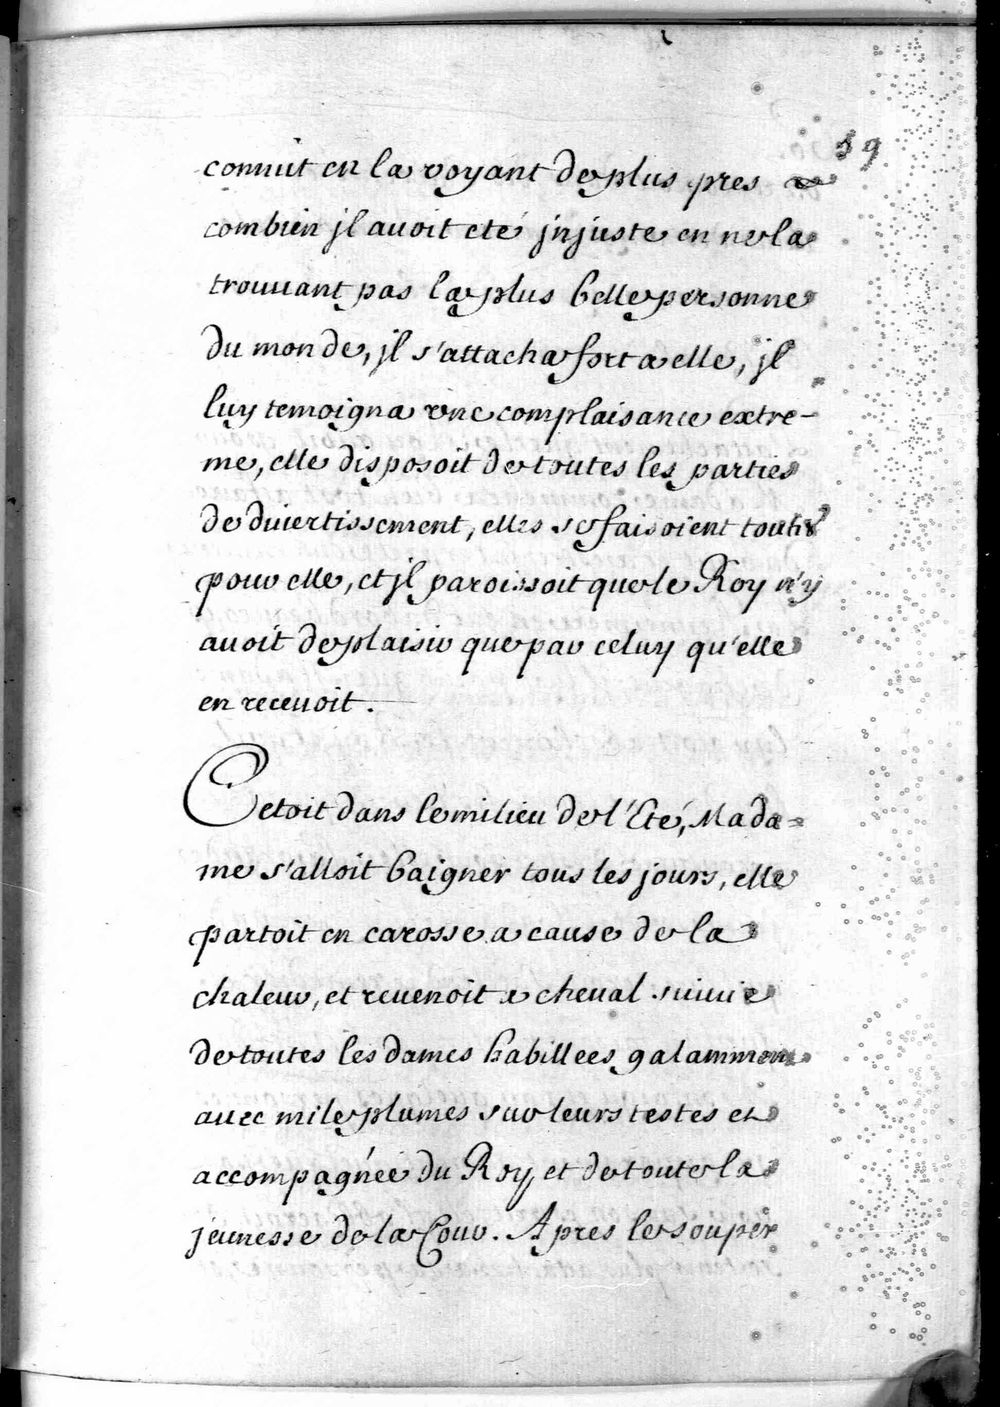 59
connut en la voyant de plus pres
combien jl auoit eté jnjuste en ne la
trouuant pas la plus belle personne
du monde, jl s'attacha fort a elle, jl
luy temoigna vne complaisance extre-
me, elle disposoit de toutes les parties
de diuertissement, elles se faisoient toutes
pour elle, et jl paroissoit que le Roy n'y
auoit de plaisir que par celuy qu'elle
en receuoit.
C'etoit dans le milieu de l'Eté, Mada-
me s'alloit baigner tous les jours, elle
partoit en carosse a cause de la
chaleur, et reuenoit a cheual suiuie
de toutes les dames habillees galamment
auec mile plumes sur leurs testes et
accompagnée du Roy, et de toute la
jeunesse de la Cour. Apres le souper